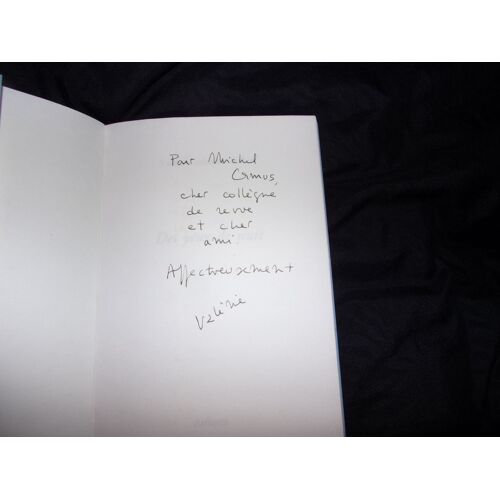 Pour Michel
Camus,
cher collègue
de revue
et cher
ami
Affectueusement
Valérie